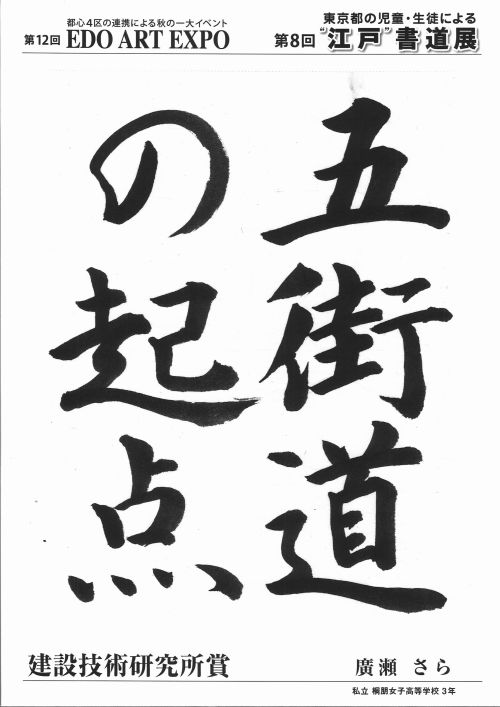 都心4区の連携による秋の一大イベント
第12回 EDO ART EXPO
東京都の児童・生徒による
第8回 "江戸"書道展
五街道
の起点
建設技術研究所賞
廣瀬 さら
私立 桐朋女子高等学校 3年